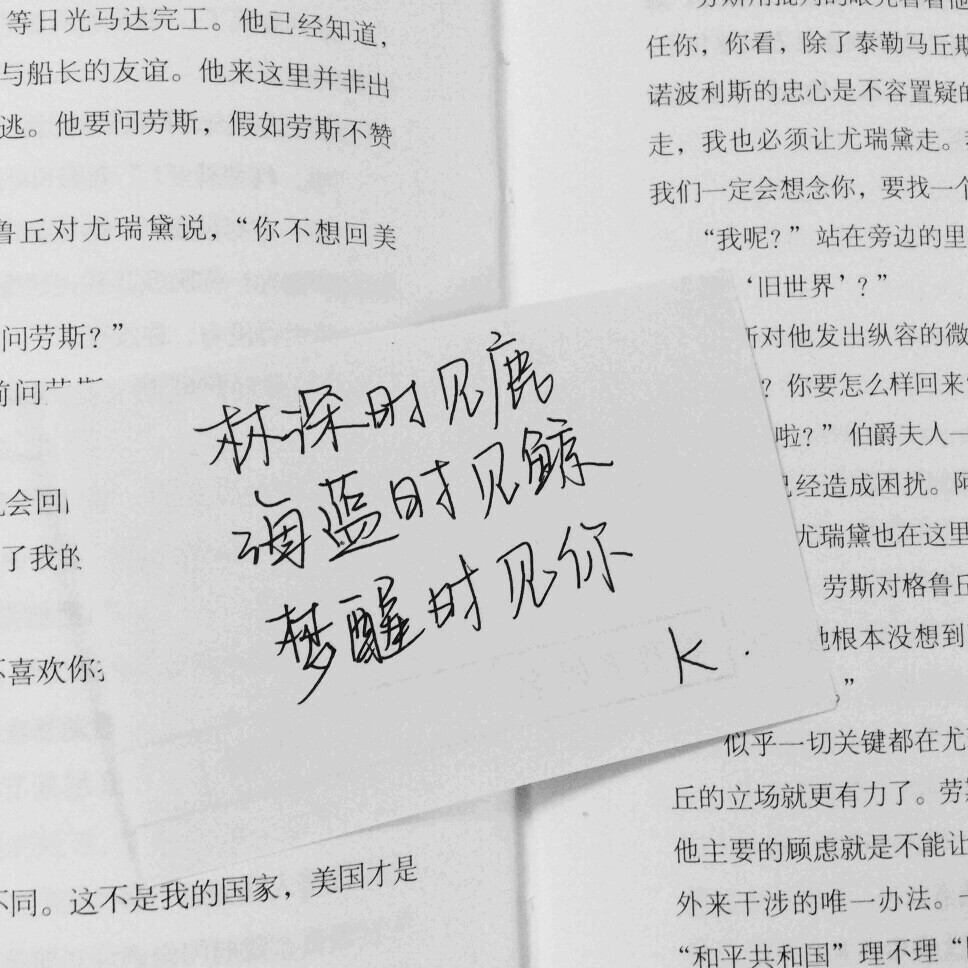 等日光马达完工。他已经知道，
与船长的友谊。他来这里并非出
逃。他要问劳斯，假如劳斯不赞
鲁丘对尤瑞黛说，“你不想回美
问劳斯？”
前问
会回
了我的
不喜欢你
不同。这不是我的国家，美国才是
林深时见鹿
海蓝时见鲸
梦醒时见你
K.
任你，你看，除了泰勒马丘斯
诺波利斯的忠心是不容置疑的
走，我也必须让尤瑞黛走。
我们一定会想念你，要找一个
“我呢？”站在旁边的里
‘旧世界’？”
斯对他发出纵容的微
？你要怎么样回来
啦？”伯爵夫人一
已经造成困扰。阿
尤瑞黛也在这里
劳斯对格鲁丘
他根本没想到
。”
似乎一切关键都在尤
丘的立场就更有力了。劳斯
他主要的顾虑就是不能让
外来干涉的唯一办法。一
“和平共和国”理不理“